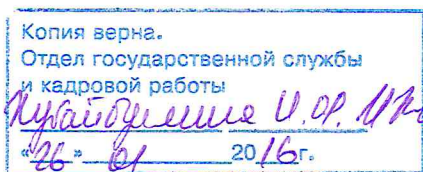 Копия верна.
Отдел государственной службы
и кадровой работы
«26» 01 2016г.